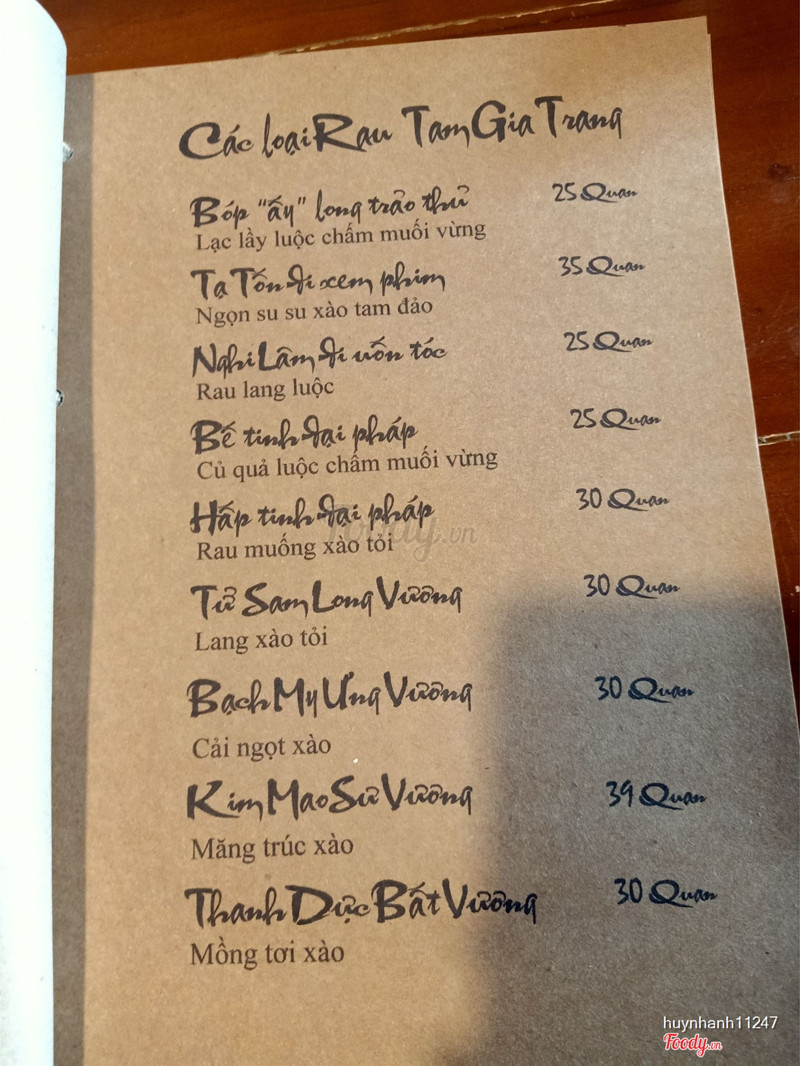 Các loại Rau Tam Gia Trang
Bóp “ấy” long trảo thủ 25 Quan
Lạc lầy luộc chấm muối vừng
Tạ Tốn đi xem phim 35 Quan
Ngọn su su xào tam đảo
Nghi Lâm đi uốn tóc 25 Quan
Rau lang luộc
Bế tinh đại pháp 25 Quan
Củ quả luộc chấm muối vừng
Hấp tinh đại pháp 30 Quan
Rau muống xào tỏi
Tử Sam Long Vương 30 Quan
Lang xào tỏi
Bạch My Ưng Vương 30 Quan
Cải ngọt xào
Kim Mao Sư Vương 39 Quan
Măng trúc xào
Thanh Dực Bất Vương 30 Quan
Mồng tơi xào
huynhanh11247
Foody.vn